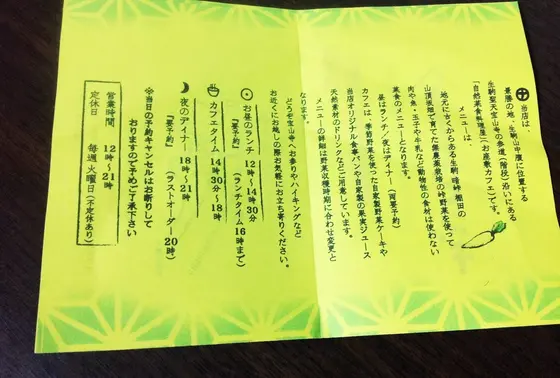 当店は、
景勝の地・生駒山中腹に位置する
生駒聖天宝山寺の参道(階段)沿いにある
「自然菜食料理屋」(お座敷カフェ)です。
メニューは、
地元に古くからある生駒 暗峠 棚田の
山頂坂畑で育てた無農薬栽培の峠野菜を使って
肉や魚・玉子や牛乳など動物性の食材は使わない
菜食のメニューとなります。
昼はランチ/夜はディナー(両要予約)
カフェは、季節野菜を使った自家製野菜ケーキや
当店オリジナル食事パンや自家製の果実ジュース
天然素材のドリンクなどご用意しています。
メニューの詳細は野菜収穫時期に合わせ変更と
なります。
どうぞ宝山寺へお参りやハイキングなど
お近くにお越しの際お気軽にお立ち寄りください。
お昼のランチ 12時〜14時30分
『要予約』 (ランチタイム16時まで)
カフェタイム 14時30分〜18時
夜のディナー 18時〜21時
『要予約』 (ラストオーダー20時)
※当日の予約キャンセルはお断りして
おりますので予めご了承下さい
営業時間 12時〜21時
定休日 毎週 火曜日(不定休あり)